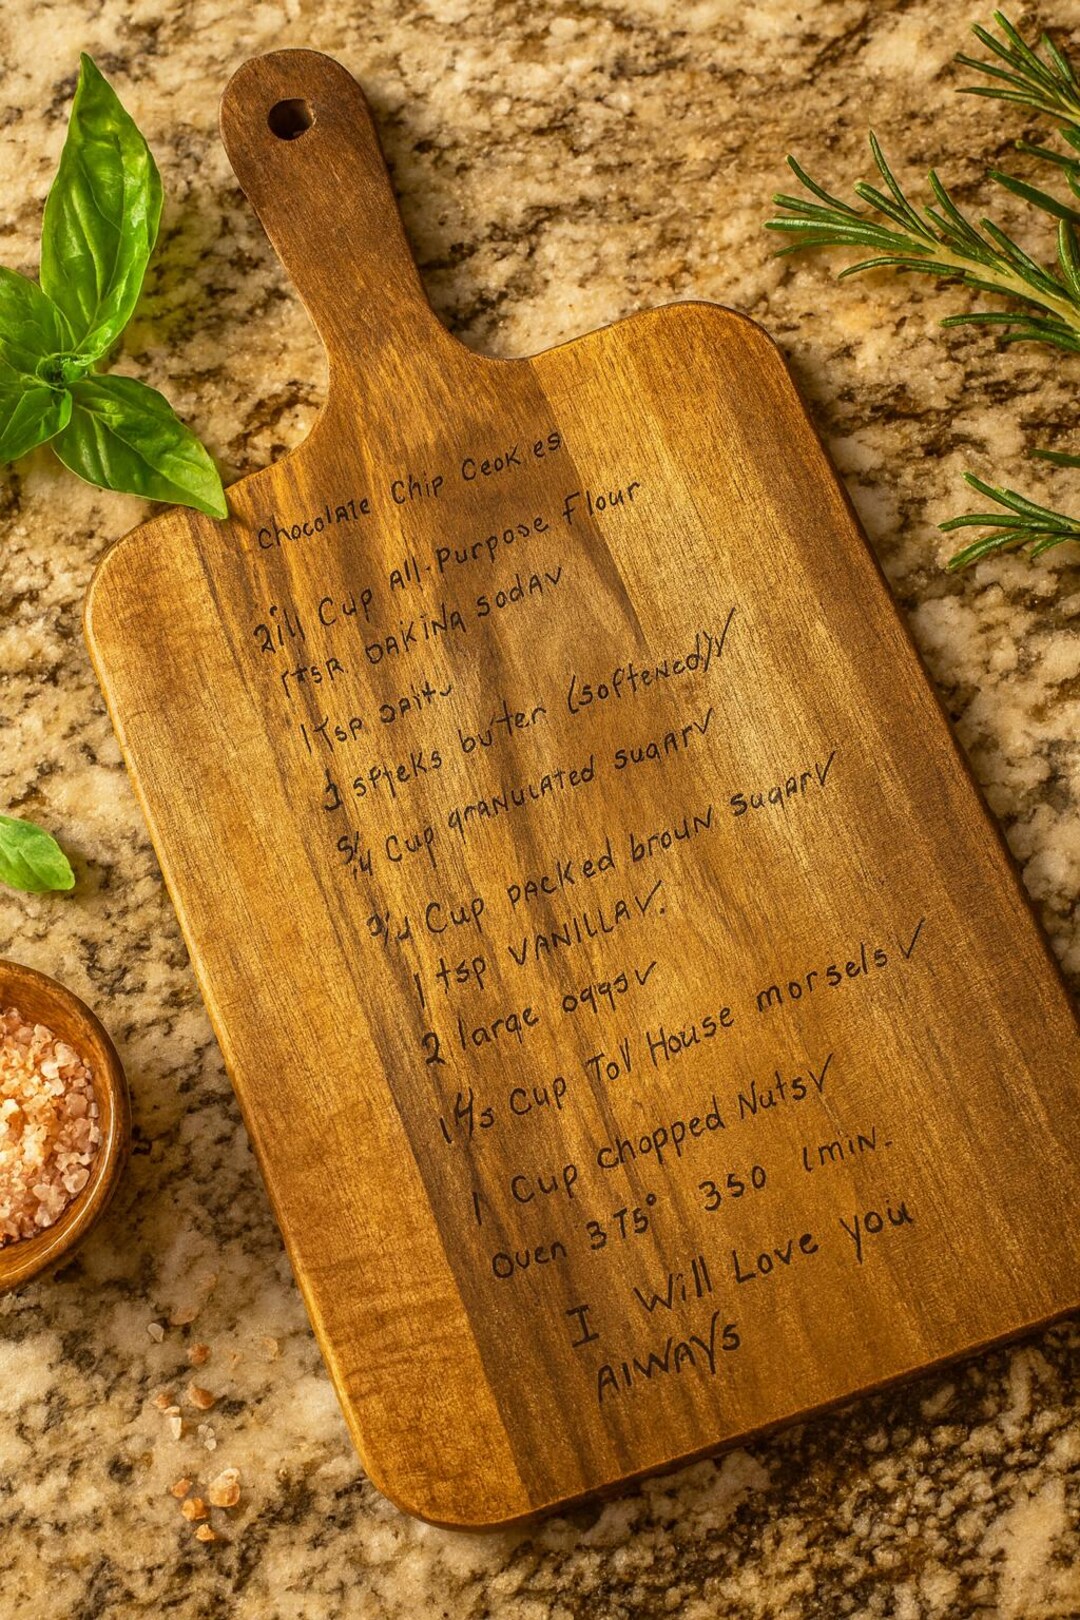 Chocolate Chip Ceokies
Cup All-Purpose Flour
BAKING sodA✓
1 Tsp
butter (softened)✓
Cup granulated sugar✓
3/4 Cup packed broun sugar✓
1 tsp VANILLA✓.
2 large oggs✓
Cup Toll House morsels✓
1 Cup chopped Nuts✓
Oven 375° 350 1min.
I Will Love you
AlWAYs